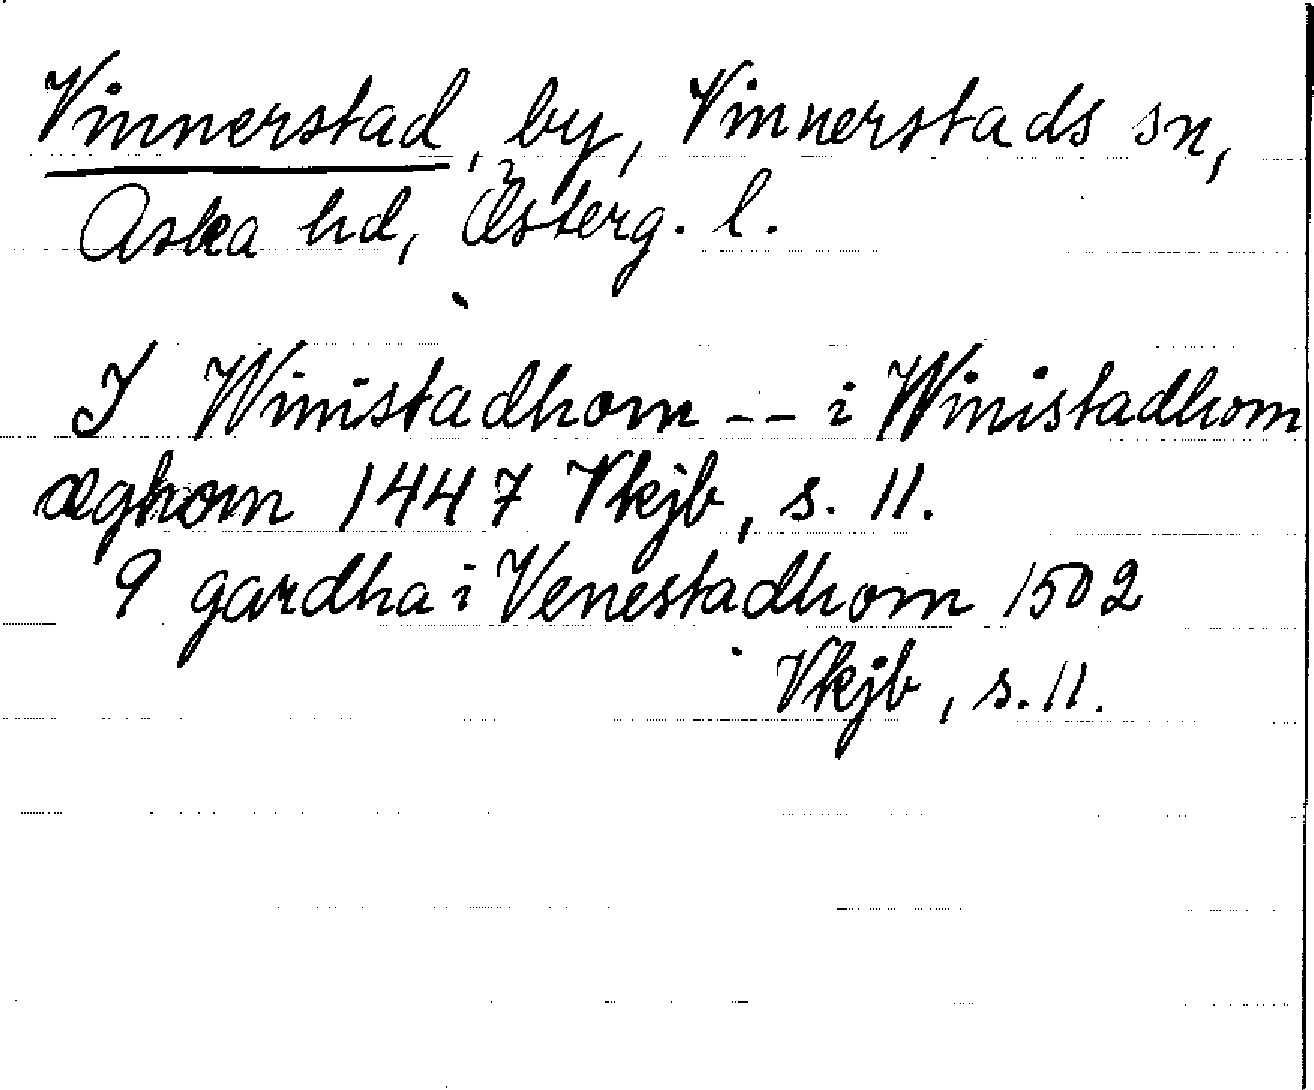 Vinnerstad, by, Vinnerstads sn,
Aska hd, Österg. l.
I Winistadhom -- i Winistadhom
æghom 1447 Vkjb, s. 11.
9 gardha i Venestadhom 1502
Vkjb, s. 11.